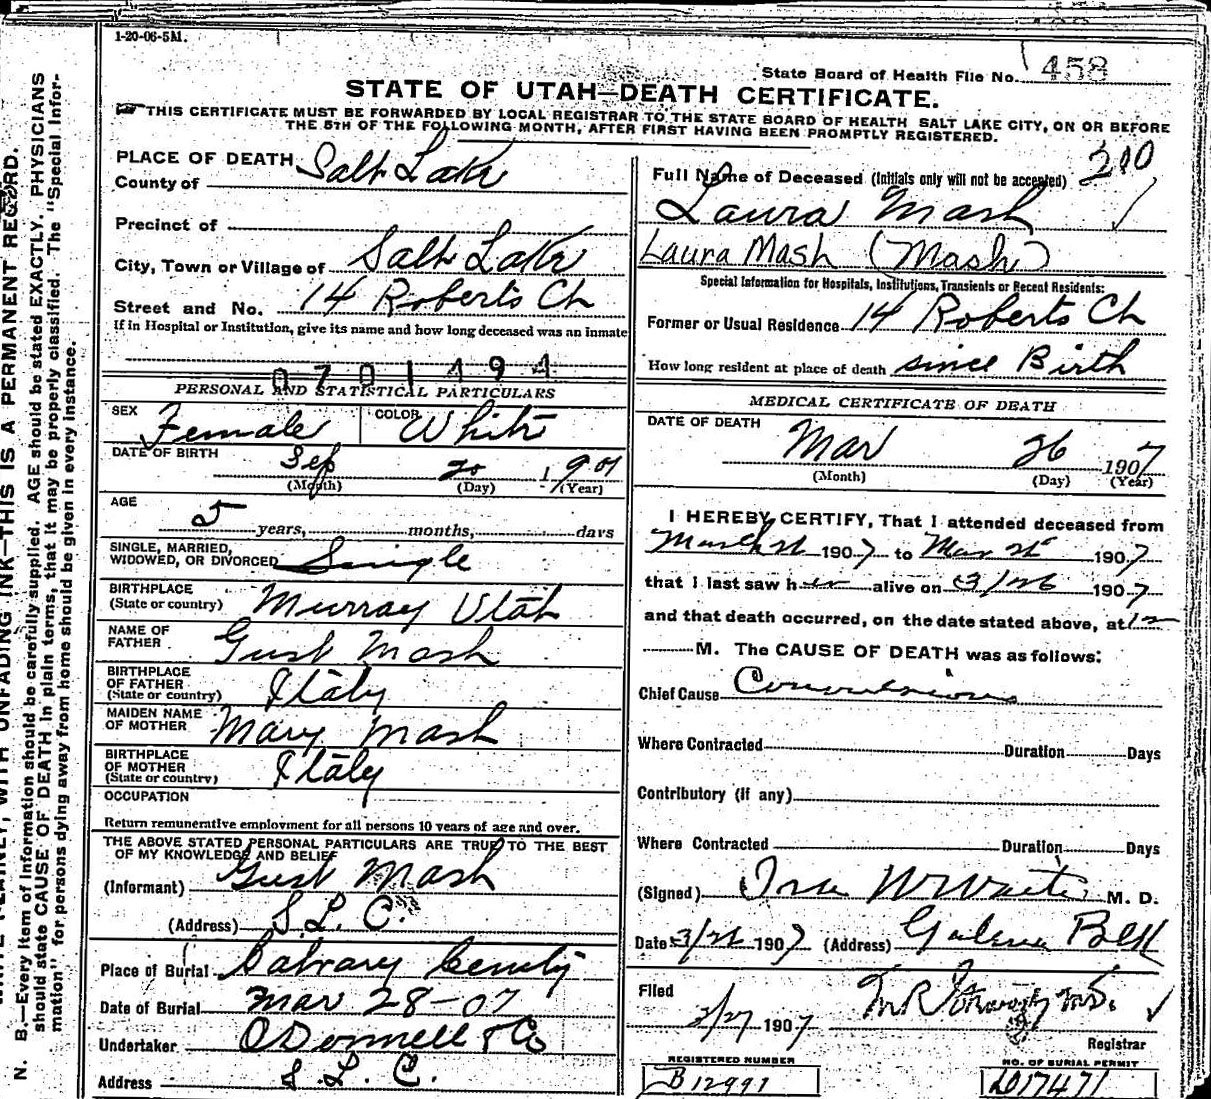 1-20-06-5M.
State Board of Health File No. 458
STATE OF UTAH—DEATH CERTIFICATE.
THIS CERTIFICATE MUST BE FORWARDED BY LOCAL REGISTRAR TO THE STATE BOARD OF HEALTH SALT LAKE CITY, ON OR BEFORE
THE 5TH OF THE FOLLOWING MONTH, AFTER FIRST HAVING BEEN PROMPTLY REGISTERED.
210
PLACE OF DEATH
County of Salt Lake
Precinct of
City, Town or Village of Salt Lake
Street and No. 14 Roberts Ct
If in Hospital or Institution, give its name and how long deceased was an inmate
0701494
PERSONAL AND STATISTICAL PARTICULARS
SEX Female COLOR White
DATE OF BIRTH Sep 20 1901
(Month) (Day) (Year)
AGE 5 years, months, days
SINGLE, MARRIED,
WIDOWED, OR DIVORCED Single
BIRTHPLACE
(State or country) Murray Utah
NAME OF
FATHER Gust Mash
BIRTHPLACE
OF FATHER
(State or country) Italy
MAIDEN NAME
OF MOTHER Mary Mash
BIRTHPLACE
OF MOTHER
(State or country) Italy
OCCUPATION
Return remunerative employment for all persons 10 years of age and over.
THE ABOVE STATED PERSONAL PARTICULARS ARE TRUE TO THE BEST
OF MY KNOWLEDGE AND BELIEF
(Informant) Gust Mash
(Address) S. L. C.
Place of Burial Calvary
Date of Burial Mar 28-07
Undertaker O'Donnell & Co
Address S. L. C.
Full Name of Deceased (Initials only will not be accepted)
Laura Mash
Laura Mash (Mash)
Special Information for Hospitals, Institutions, Transients or Recent Residents:
Former or Usual Residence 14 Roberts Ct
How long resident at place of death since Birth
MEDICAL CERTIFICATE OF DEATH
DATE OF DEATH
Mar 26 1907
(Month) (Day) (Year)
I HEREBY CERTIFY, That I attended deceased from
March 1907 to Mar 1907
that I last saw her alive on 3/26 1907
and that death occurred, on the date stated above, at 12
M. The CAUSE OF DEATH was as follows:
Chief Cause Convulsions
Where Contracted Duration Days
Contributory (if any)
Where Contracted Duration Days
(Signed) M. D.
Date 3/26 1907 (Address) Galena
Filed 3/27 1907 M.D.
Registrar
REGISTERED NUMBER
B 12991
NO. OF BURIAL PERMIT
N. B.—Every item of information should be carefully supplied. AGE should be stated EXACTLY. PHYSICIANS
should state CAUSE OF DEATH in plain terms, that it may be properly classified. The "Special Infor-
mation" for persons dying away from home should be given in every instance.
WITH UNFADING INK—THIS IS A PERMANENT RECORD.